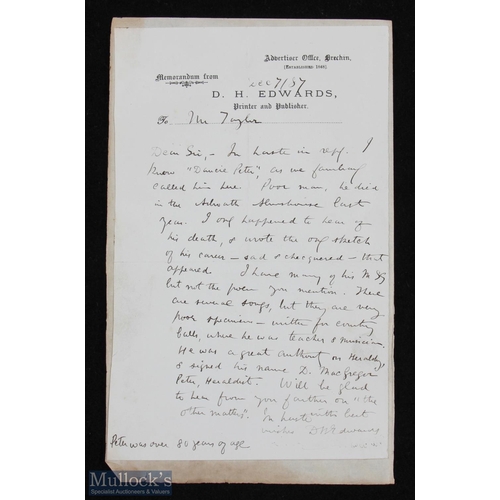 Advertiser Office, Brechin,
(ESTABLISHED 1848)
Memorandum from
Dec 7/37
D. H. EDWARDS,
Printer and Publisher.
To Mr Taylor
Dear Sir, - In haste in reply. I
knew "Dancie Peter", as we familiarly
called him here. Poor man, he died
in the Almshouse last
year. I only happened to hear of
his death, & wrote the only sketch
of his career - sad & chequered - that
appeared. I have many of his M
but not the poem you mention. There
are several songs, but they are very
poor specimens - written for country
balls, where he was teacher & musician.
He was a great authority on Heraldry
& signed his name D. MacGregor
Peter, Heraldist. Will be glad
to hear from you further on "the
other matter". In haste with best
wishes DH Edwards
Peter was over 80 years of age
Mullock's
Specialist Auctioneers & Valuers